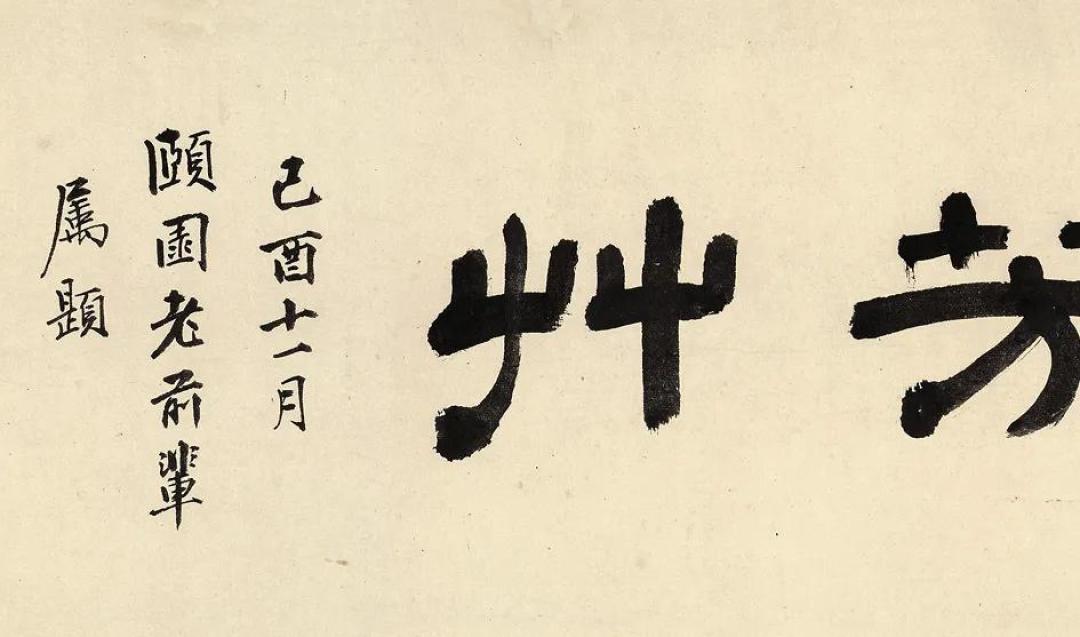 芳艸
己酉十一月
頤園老前輩
属題